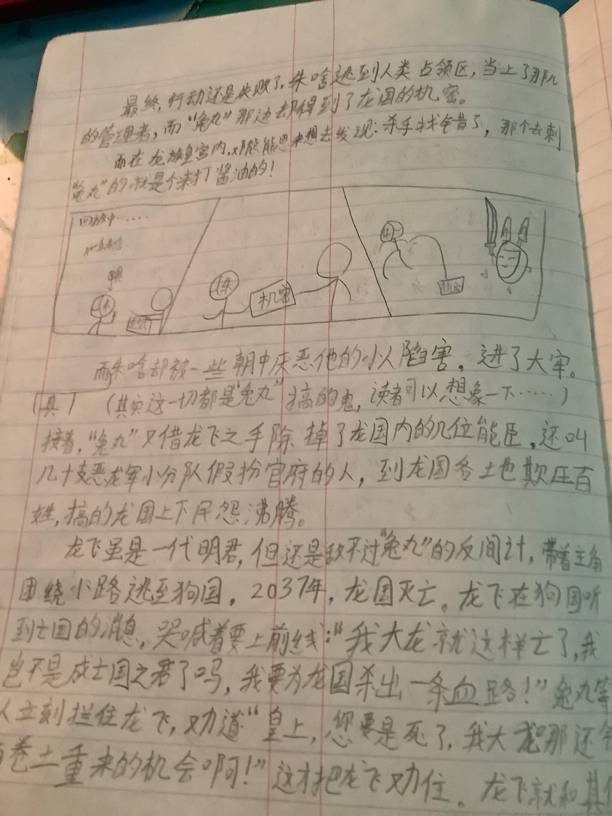 最终，行动还是失败了，朱啥逃到人类占领区，当上了那儿
的管理者，而"兔丸"那边却得到了龙国的机密。
而在龙族皇宫内，
发现：杀手找错了，那个去刺
"兔丸"的就是个来打酱油的！
回放中……
朱
机密
而朱啥却被一些朝中厌恶他的小人陷害，进了大牢。
（真）（其实这一切都是"兔丸"搞的鬼，读者可以想象一下……）
接着，"兔丸"又借龙飞之手除掉了龙国内的几位能臣，还叫
几十支恶龙军小分队假扮官府的人，到龙国各土也欺压百
姓，搞的龙国上下民怨沸腾。
龙飞虽是一代明君，但还是敌不过"兔丸"的反间计，带着主角
团绕小路逃至狗国，2037年，龙国灭亡。龙飞在狗国听
到亡国的消息，哭喊着要上前线："我大龙就这样亡了，我
岂不是成亡国之君了吗，我要为龙国杀出一条血路！"兔丸等
人立刻拦住龙飞，劝道"皇上，您要是死了，我大龙那还会
卷土重来的机会啊！"这才把龙飞劝住。龙飞就和其他